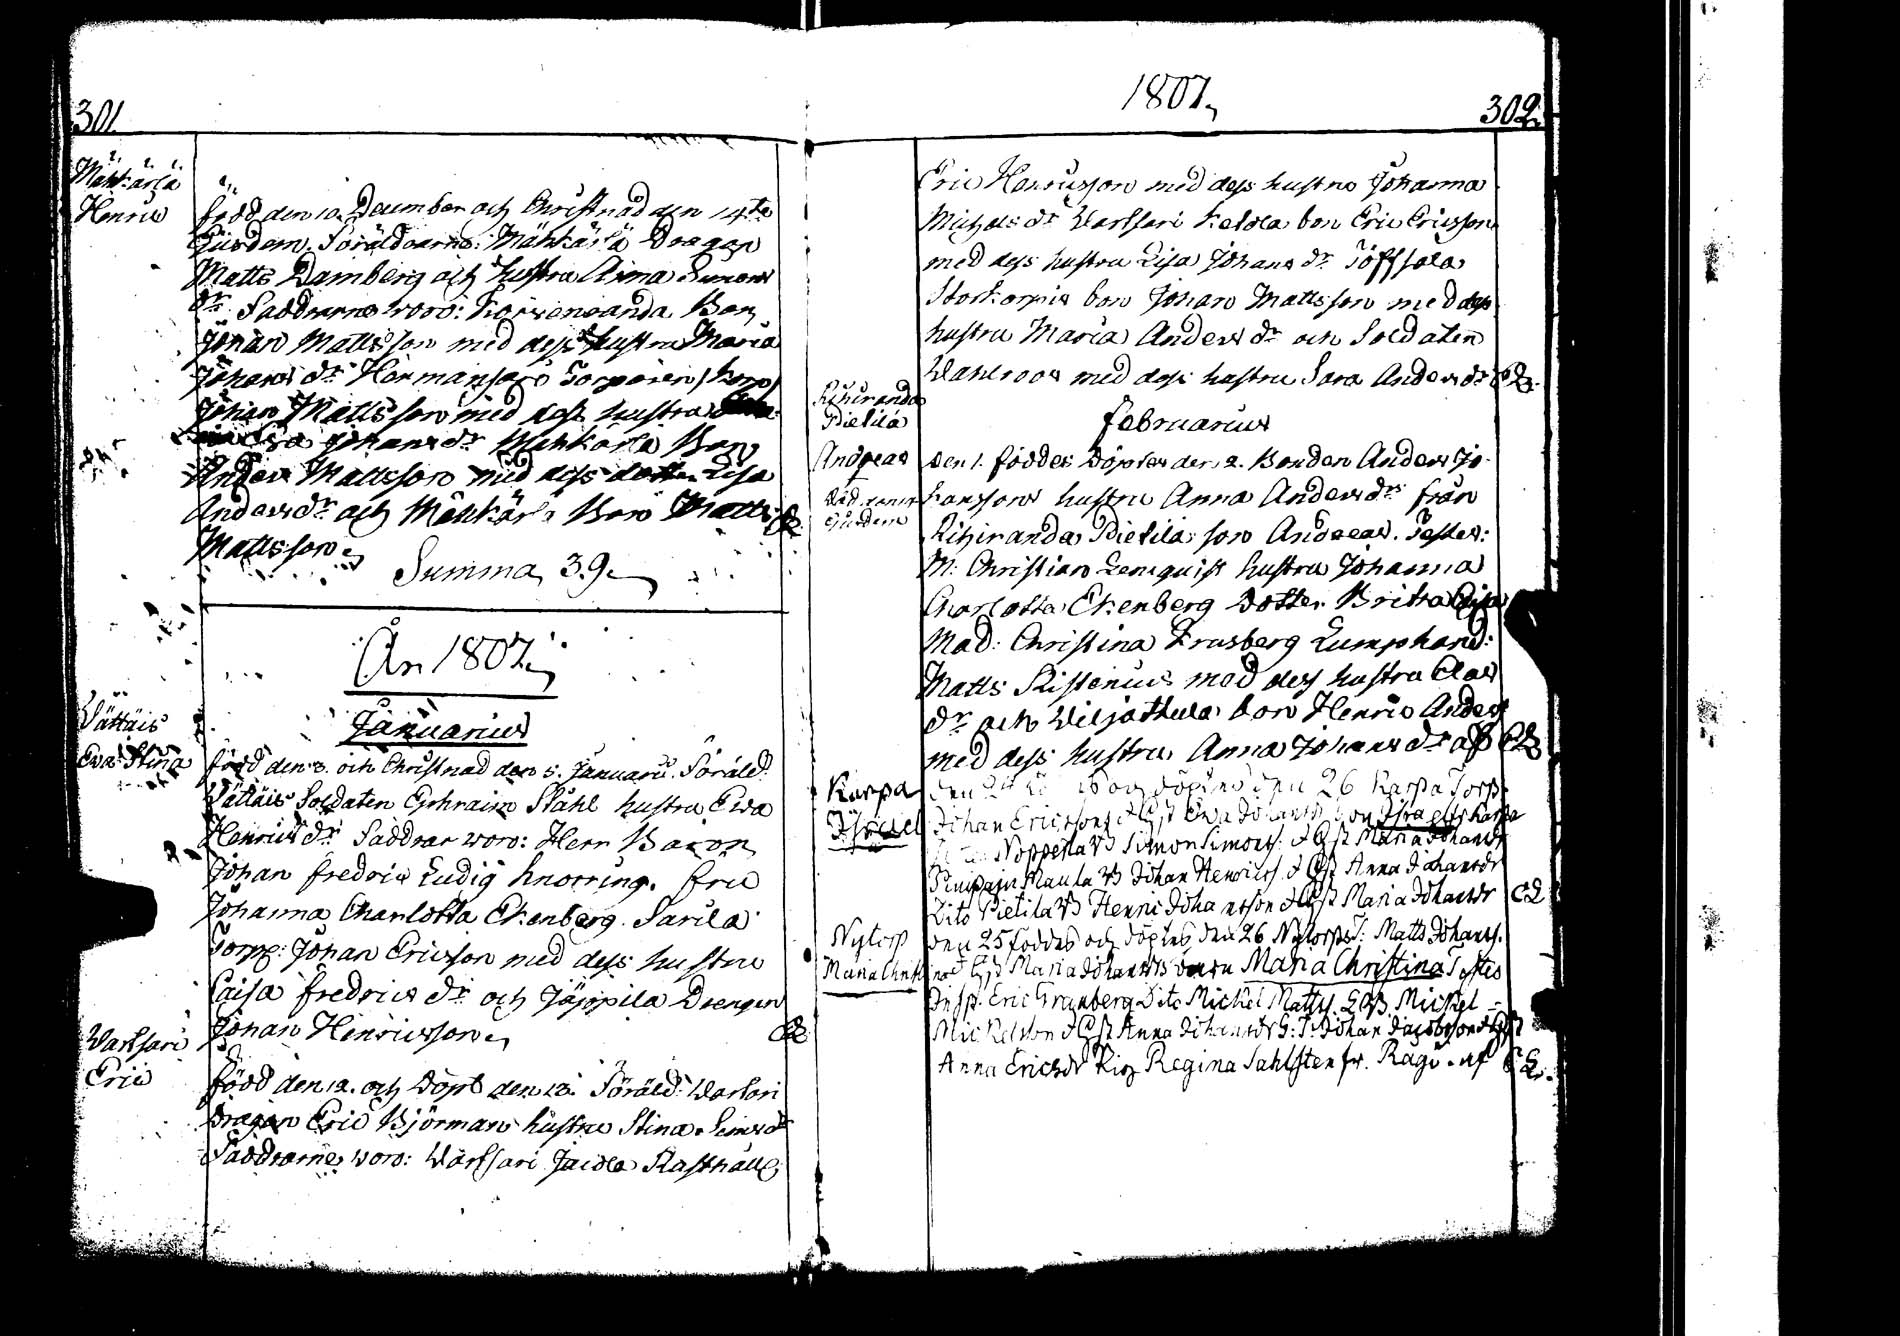 301
Mähkärlä
Henric
född den 10. December och Christnad den 14de
Ejusdem. Föräldrarna: Mähkärlä Dragon
Matts Damberg och hustru Anna Simons
dr. Faddrarna woro: Korvenranda Bon,
Johan Mattsson med dess hustru Maria
Johans dr Hermansaro Torparen
Johan Mattsson med dess hustru
Lisa Johans dr Mähkärlä Bon,
Anders Mattsson med dess dotter Lisa
Anders dr och Mähkärlä Bon Matts
Mattsson.
Summa, 39.
År 1807.
Januarius
Wättäis
Eva Stina
född den 3. och Christnad den 5. Januarii. Föräld:
Wättäis Soldaten Ephraim Ståhl hustru Ewa
Henrics dr Faddrar woro: Herr Baron
Johan Fredric Ludig Knorring. fru
Johanna Charlotta Ekenberg. Sarila
Torp: Johan Ericsson med dess hustru
Caisa Fredrics dr och Jäppila Drengen
Johan Henricsson.
Warssari
Eric
född den 12. och döpt den 13. Föräld: Warsari
Dragon Eric Björman hustru Stina Simsdr
Faddrarne woro: Warssari Jaicla Rusthåll:
1807.
302.
Eric Henricsson med dess hustru Johanna
Michels dr Warssari Ketola bon Eric Ericsson
med dess hustru Lisa Johans dr Töffsala
Storkorpis bon Johan Mattsson med dess
hustru Maria Anders dr och Soldaten
Wahlroos med dess hustru Sara Anders dr
Februarius
Rihiranda
Pietilä
Andreas
Ejusdem
den 1. föddes döptes den 2. Bonden Anders Jo-
hanssons hustru Anna Anders dr från
Rihiranda Pietilä son Andreas. Testes:
M: Christian Lemquist hustru Johanna
Charlotta Ekenberg Dotter Britta Caisa
Mad: Christina Krusberg Lumphand:
Matts Ristenius med dess hustru Elas
dr och Wiljathula bon Henric Anders
med dess hustru Anna Johans dr
Karpa
Israel
den 24 och döptes den 26 Karpa Torp:
Johan Ericssons Hust Ewa Johansdr Son Israel Karpa
Noppena B Simon Simons: Hust Maria Johansdr
Maula B Johan Henrics: Hust Anna Johansdr
Dito Pietila B Henric Johansson Hust Maria Johansdr
Nytorp
Maria Christina
den 25 foddes och döptes den 26 Nytorps T: Matts Johans.
Hust Maria Johansdrs barn Maria Christina Testes
Insp. Eric Granberg Dito Mickel Matts. Mickel
Mickelsson Hust Anna Johansdr Johan Jacobsson Hust
Anna Ericsdr Pig Regina Sahlsten